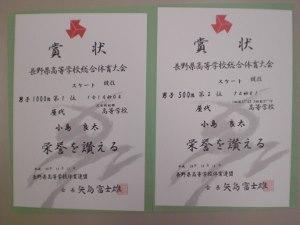 賞状
長野県高等学校総合体育大会
スケート 競技
男子 1000m 第1位
屋代 高等学校
小島 良太
栄誉を讃える
長野県高等学校体育連盟
会長 矢島富士雄
賞状
長野県高等学校総合体育大会
スケート 競技
男子 500m 第2位
屋代 高等学校
小島 良太
栄誉を讃える
長野県高等学校体育連盟
会長 矢島富士雄